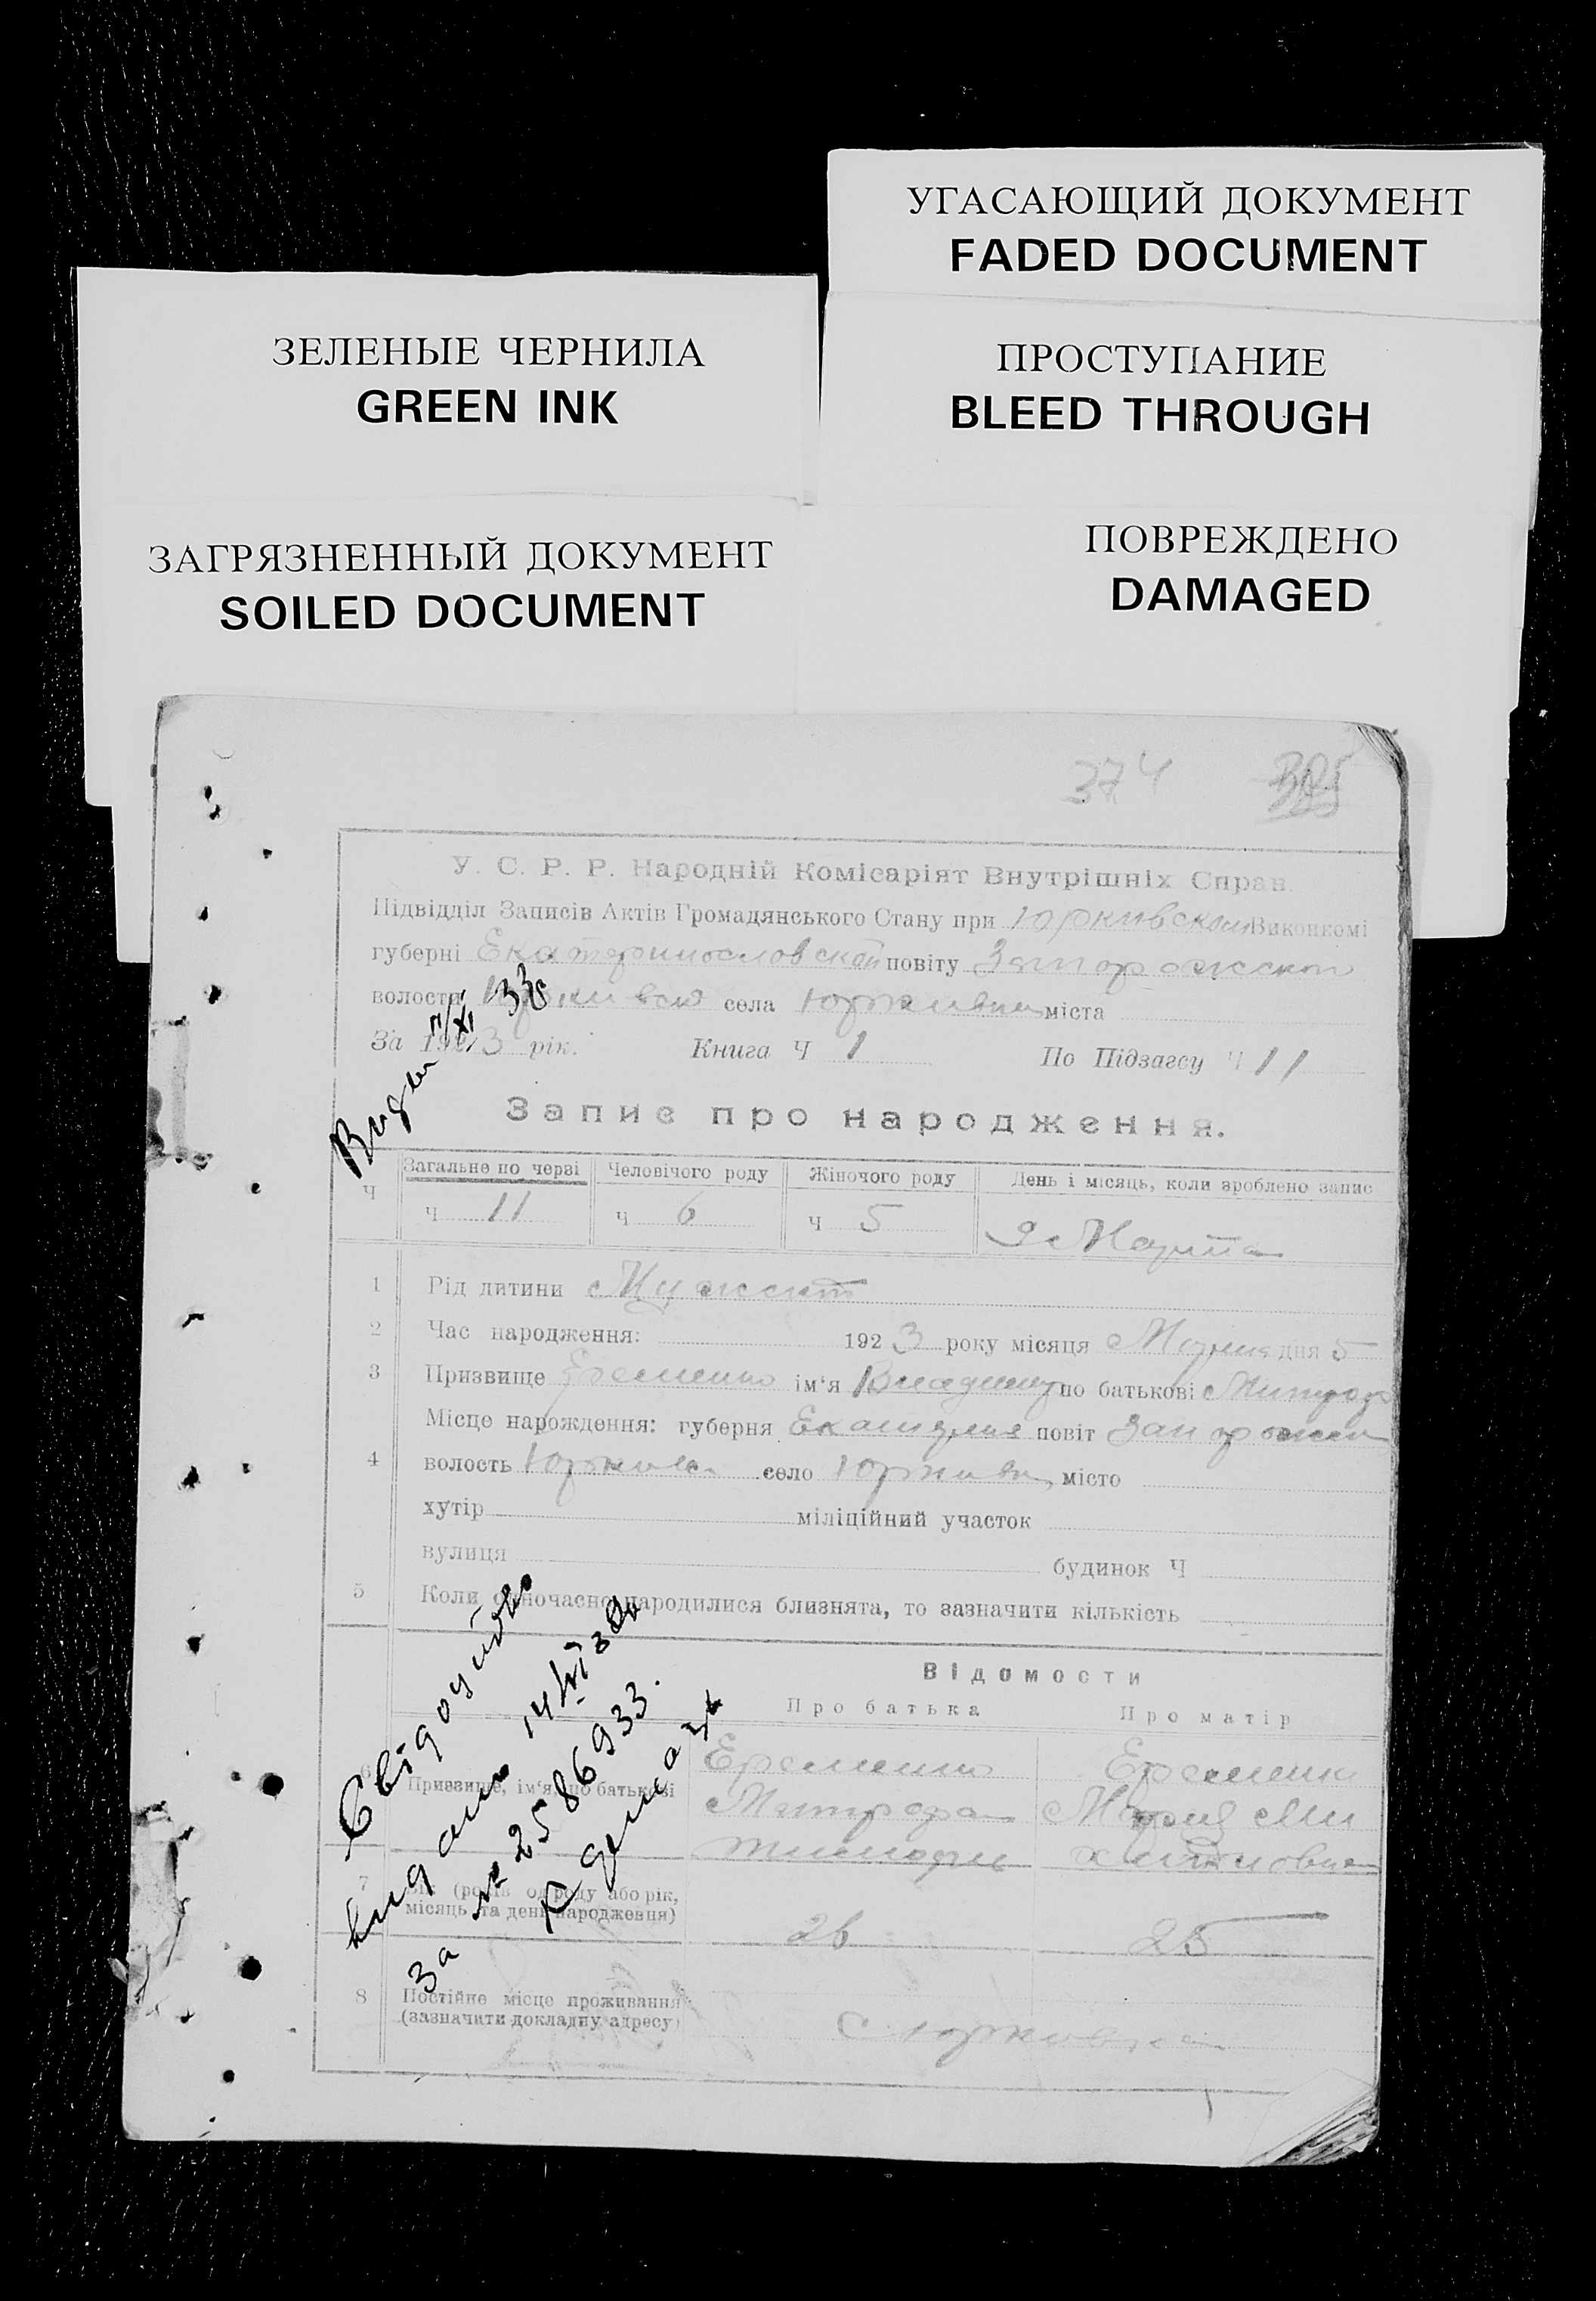 УГАСАЮЩИЙ ДОКУМЕНТ
FADED DOCUMENT
ЗЕЛЕНЫЕ ЧЕРНИЛА
GREEN INK
ПРОСТУПАНИЕ
BLEED THROUGH
ЗАГРЯЗНЕННЫЙ ДОКУМЕНТ
SOILED DOCUMENT
ПОВРЕЖДЕНО
DAMAGED
374
У. С. Р. Р. Народній Комісаріят Внутрішніх Справ.
Підвідділ Записів Актів Громадянського Стану при Юркивском Виконкомі
губерні Екатеринословской повіту Запорожском
волости Юркивско села Юркивка міста
За 1923 рік. Книга Ч 1 По Підзагсу Ч 11
Запис про народження.
Ч Загальне по черзі Человічого роду Жіночого роду День і місяць, коли зроблено запис
Ч 11 Ч 6 Ч 5 9 Марта
1 Рід дитини Мужски
2 Час народження: 1923 року місяця Марта дня 5
3 Призвище Еременко ім‘я Владимир по батькові Митроф
Місце нарождення: губерня Екатерин повіт Запорожск
4 волость Юркивс село Юркивка місто
хутір міліційний участок
вулиця будинок Ч
5 Коли одночасно народилися близнята, то зазначити кількість
Відомости
Про батька Про матір
6 Призвище, ім‘я, по батькові
Еременко Еременко
Митрофа Мария
7 Вік (років од роду або рік,
місяць та день народження)
26 25
8 Постійне місце проживання
(зазначити докладну адресу)
с. Юрковка
Свідоцтво
видано 14
за № 2586933.